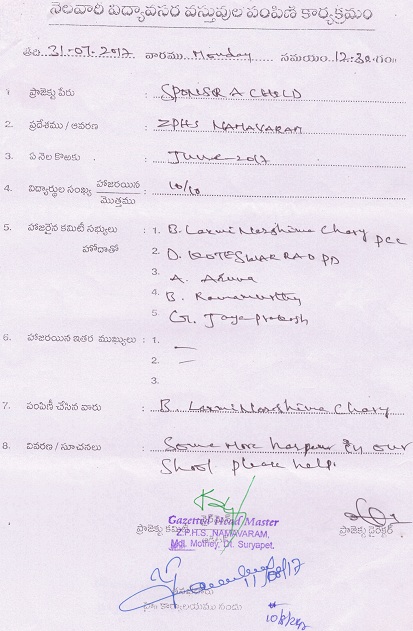 నెలవారి విద్యావసర వస్తువుల పంపిణి కార్యక్రమం
తేది 31-07-2017 వారము Monday సమయం 12:30 గం॥
1. ప్రాజెక్టు పేరు : SPONSOR A CHILD
2. ప్రదేశము / ఆవరణ : ZPHS NAMAVARAM
3. ఏ నెల కొఱకు : June-2017
4. విద్యార్థుల సంఖ్య హాజరయిన / మొత్తము : 10/10
5. హాజరైన కమిటీ సభ్యులు : 1. B. Laxmi Narshima Chary PCC
హోదాతో 2. D. KOTESWAR RAO PD
3. A. Aruna
4. B. Ramamurthy
5. G. Jaya Prakash
6. హాజరయిన ఇతర ముఖ్యులు : 1. —
2. —
3.
7. పంపిణీ చేసిన వారు : B. Laxmi Narshima Chary
8. వివరణ / సూచనలు : Some More in our
Shool please help.
ప్రాజెక్టు కమిటి
ప్రాజెక్టు డైరెక్టర్
Gazetted Head Master
Z.P.H.S. NAMAVARAM,
Mdl. Mothey, Dt. Suryapet.
11/08/17